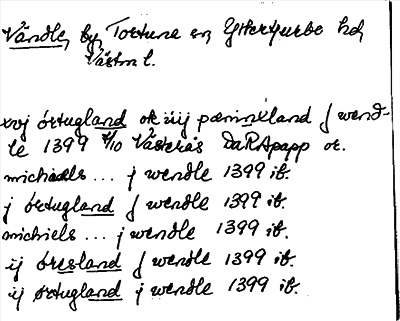 Vändle, by, Tortuna sn, Yttertjurbo hd,
Västm l.
xvj örtugland ok iiij pænninxland J wend-
le 1399 4/10 Västerås DaRApapp or.
michaels ... j wendle 1399 ib.
j örtugland J wendle 1399 ib.
michiels ... j wendle 1399 ib.
ij öresland J wendle 1399 ib.
ij örtugland j wendle 1399 ib.